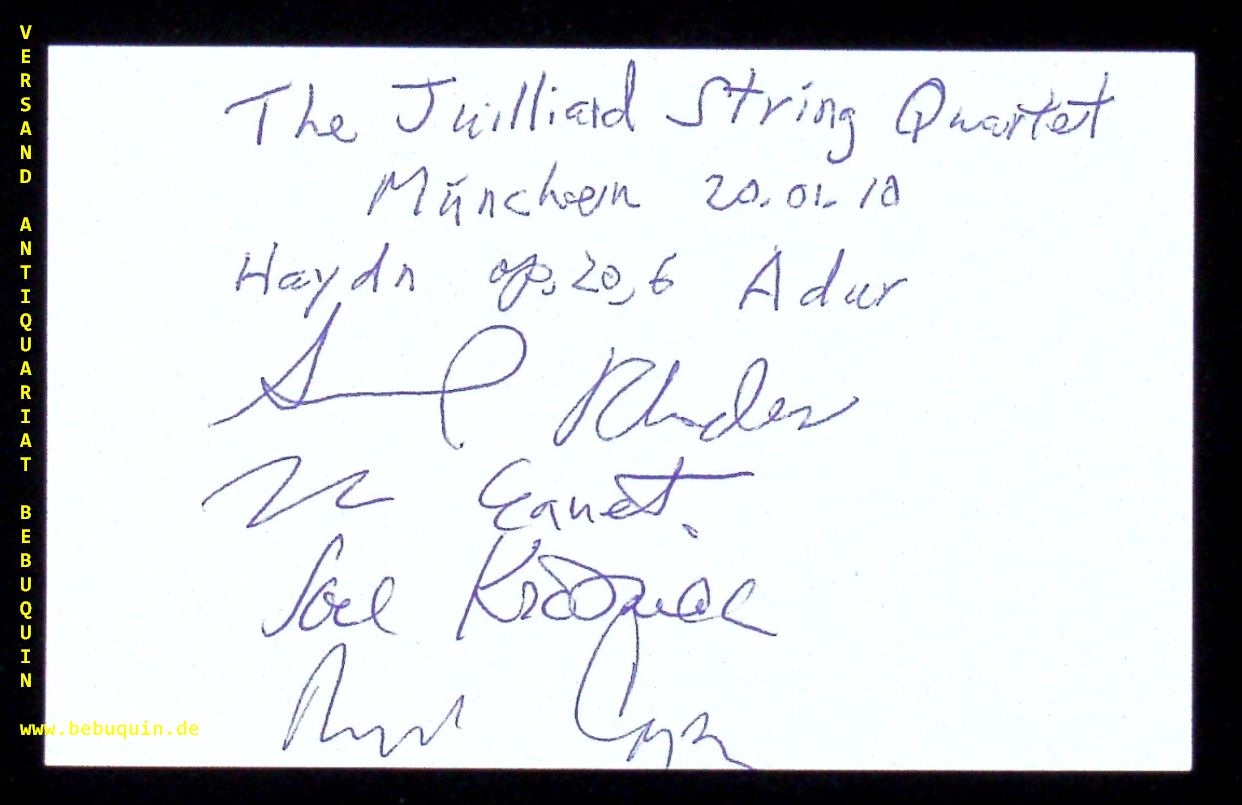 VERSAND ANTIQUARIAT BEBUQUIN
The Juilliard String Quartet
München 20.01.10
Haydn op. 20, 6 A dur
Samuel Rhodes
Nick Eanet.
Joel Krosnick
Ronald Copes
www.bebuquin.de